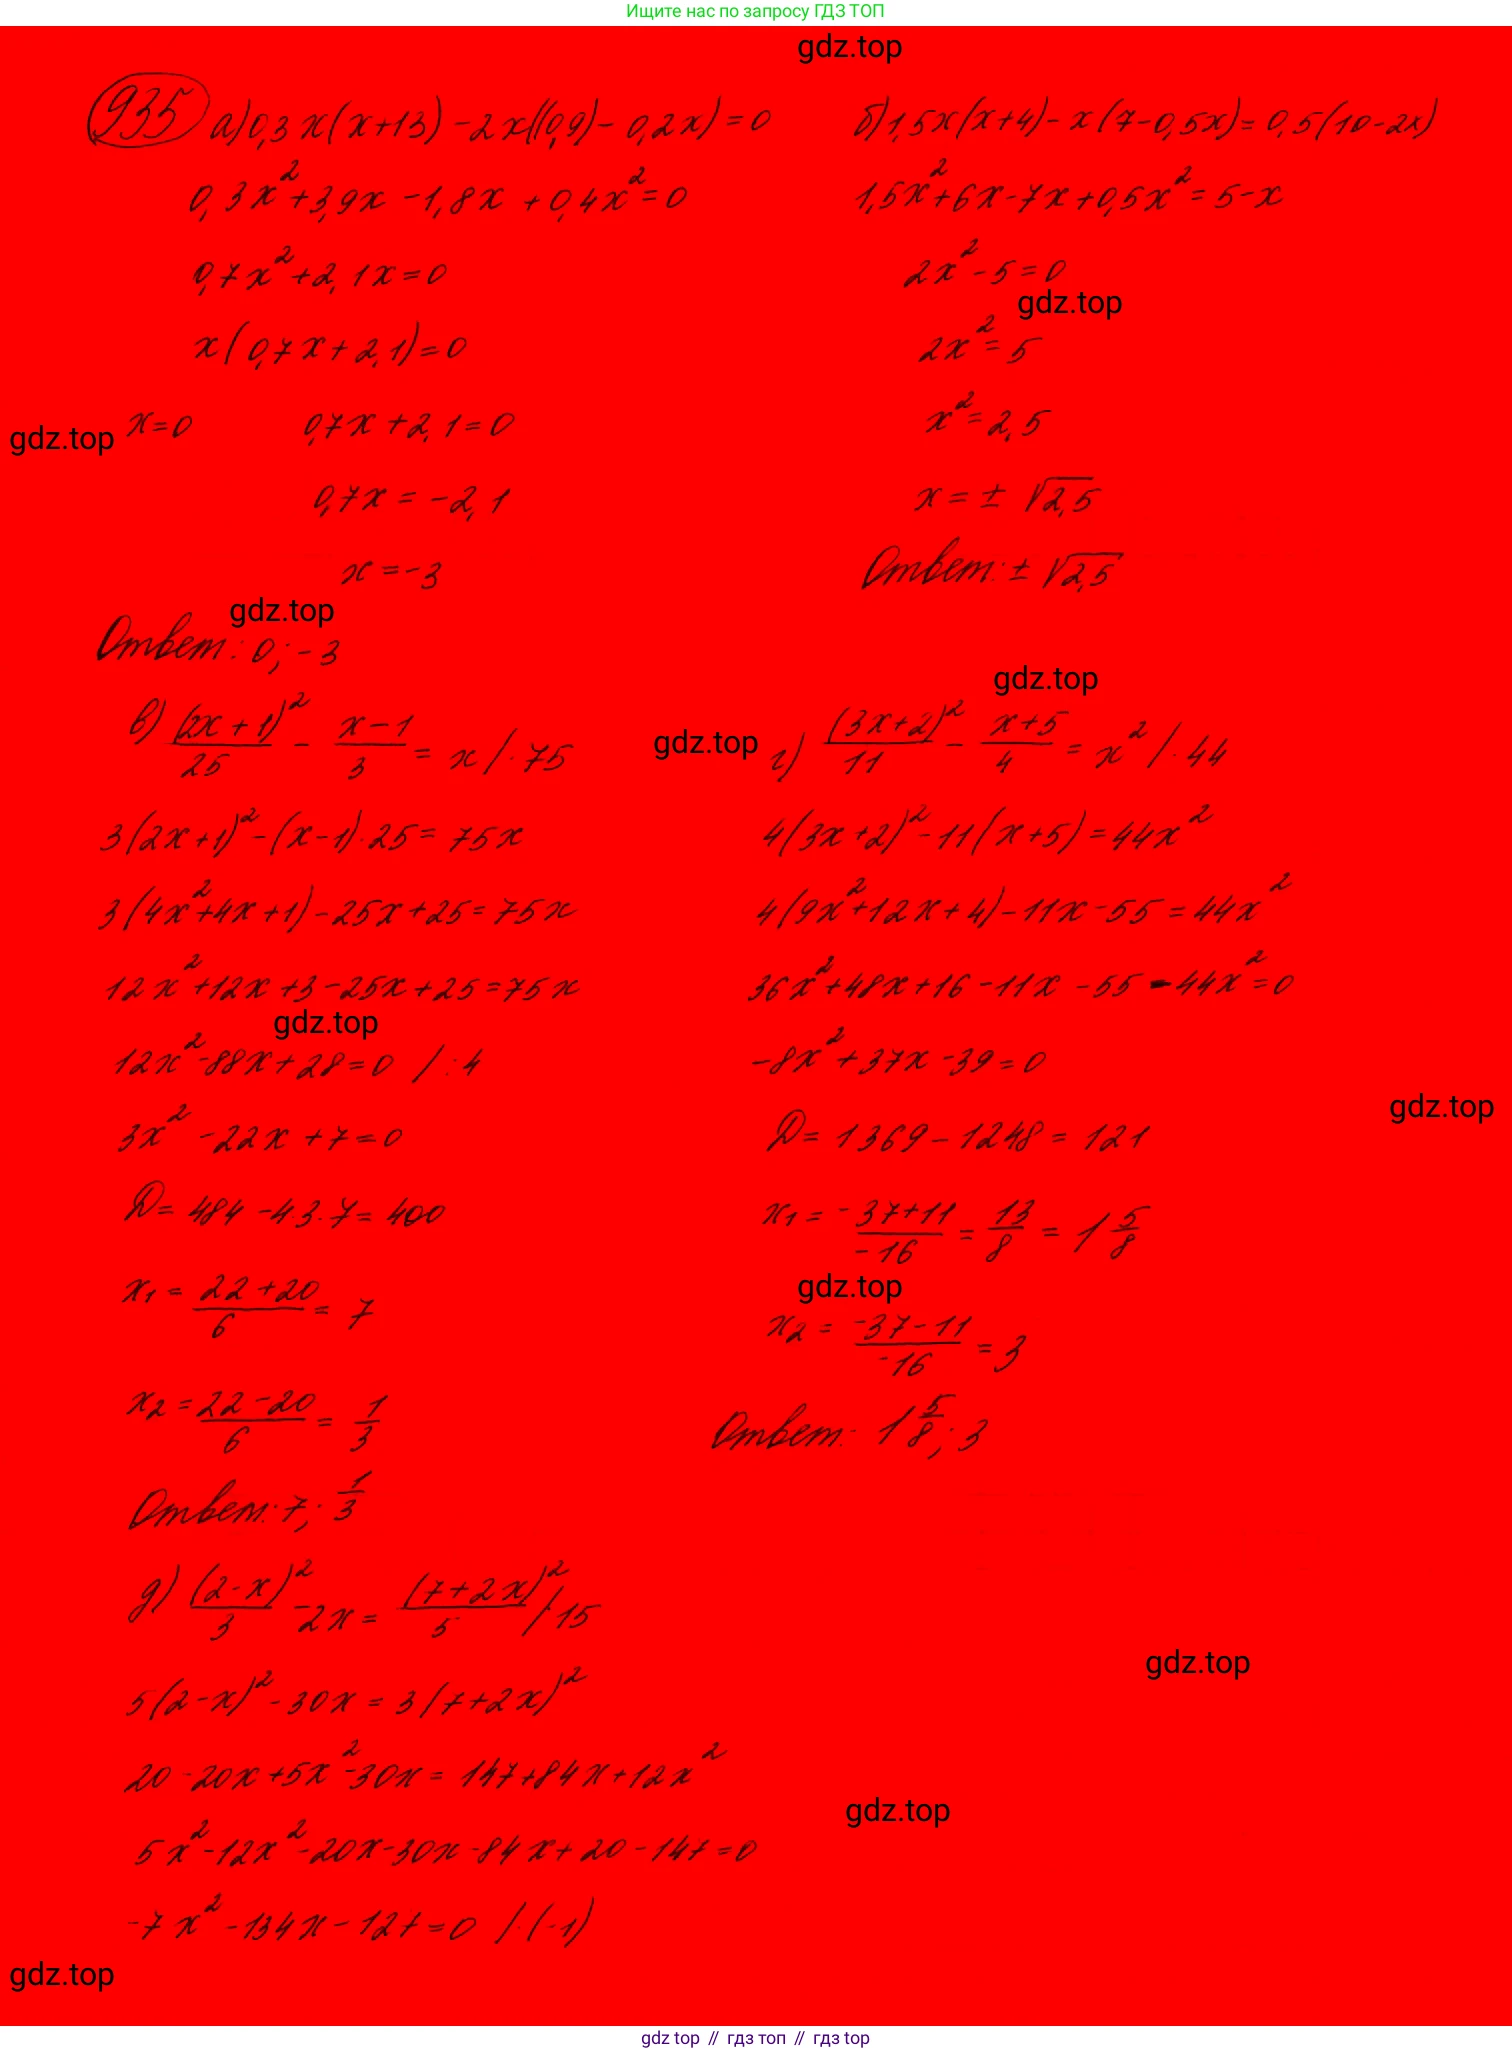 Ищите нас по запросу ГДЗ ТОП
gdz.top
935 а) 0,3x(x+13) -2x((0,9) - 0,2x) = 0
0,3x²+3,9x -1,8x +0,4x²=0
0,7x²+2,1x=0
x(0,7x+2,1)=0
gdz.top
x=0 0,7x+2,1=0
0,7x = -2,1
x = -3
gdz.top
Ответ: 0; -3
б) 1,5x(x+4) - x(7-0,5x) = 0,5(10-2x)
1,5x²+6x-7x+0,5x²=5-x
2x²-5=0
gdz.top
2x²=5
x²=2,5
x = ± √2,5
Ответ: ± √2,5
в) (2x+1)²/25 - (x-1)/3 = x /·75
3(2x+1)²-(x-1)·25=75x
3(4x²+4x+1)-25x+25=75x
12x²+12x+3-25x+25=75x
gdz.top
12x²-88x+28=0 /:4
3x²-22x+7=0
D=484-4·3·7=400
x₁=(22+20)/6=7
x₂=(22-20)/6=1/3
Ответ: 7; 1/3
gdz.top
gdz.top
г) (3x+2)²/11 - (x+5)/4 = x² /·44
4(3x+2)²-11(x+5)=44x²
4(9x²+12x+4)-11x-55=44x²
36x²+48x+16-11x-55-44x²=0
-8x²+37x-39=0
gdz.top
D=1369-1248=121
x₁=-37+11/-16=13/8=1 5/8
gdz.top
x₂=-37-11/-16=3
Ответ: 1 5/8; 3
д) (2-x)²/3 -2x = (7+2x)²/5 /·15
gdz.top
5(2-x)²-30x=3(7+2x)²
20-20x+5x²-30x=147+84x+12x²
gdz.top
5x²-12x²-20x-30x-84x+20-147=0
-7x²-134x-127=0 /·(-1)
gdz.top
gdz top // гдз топ // гдз top